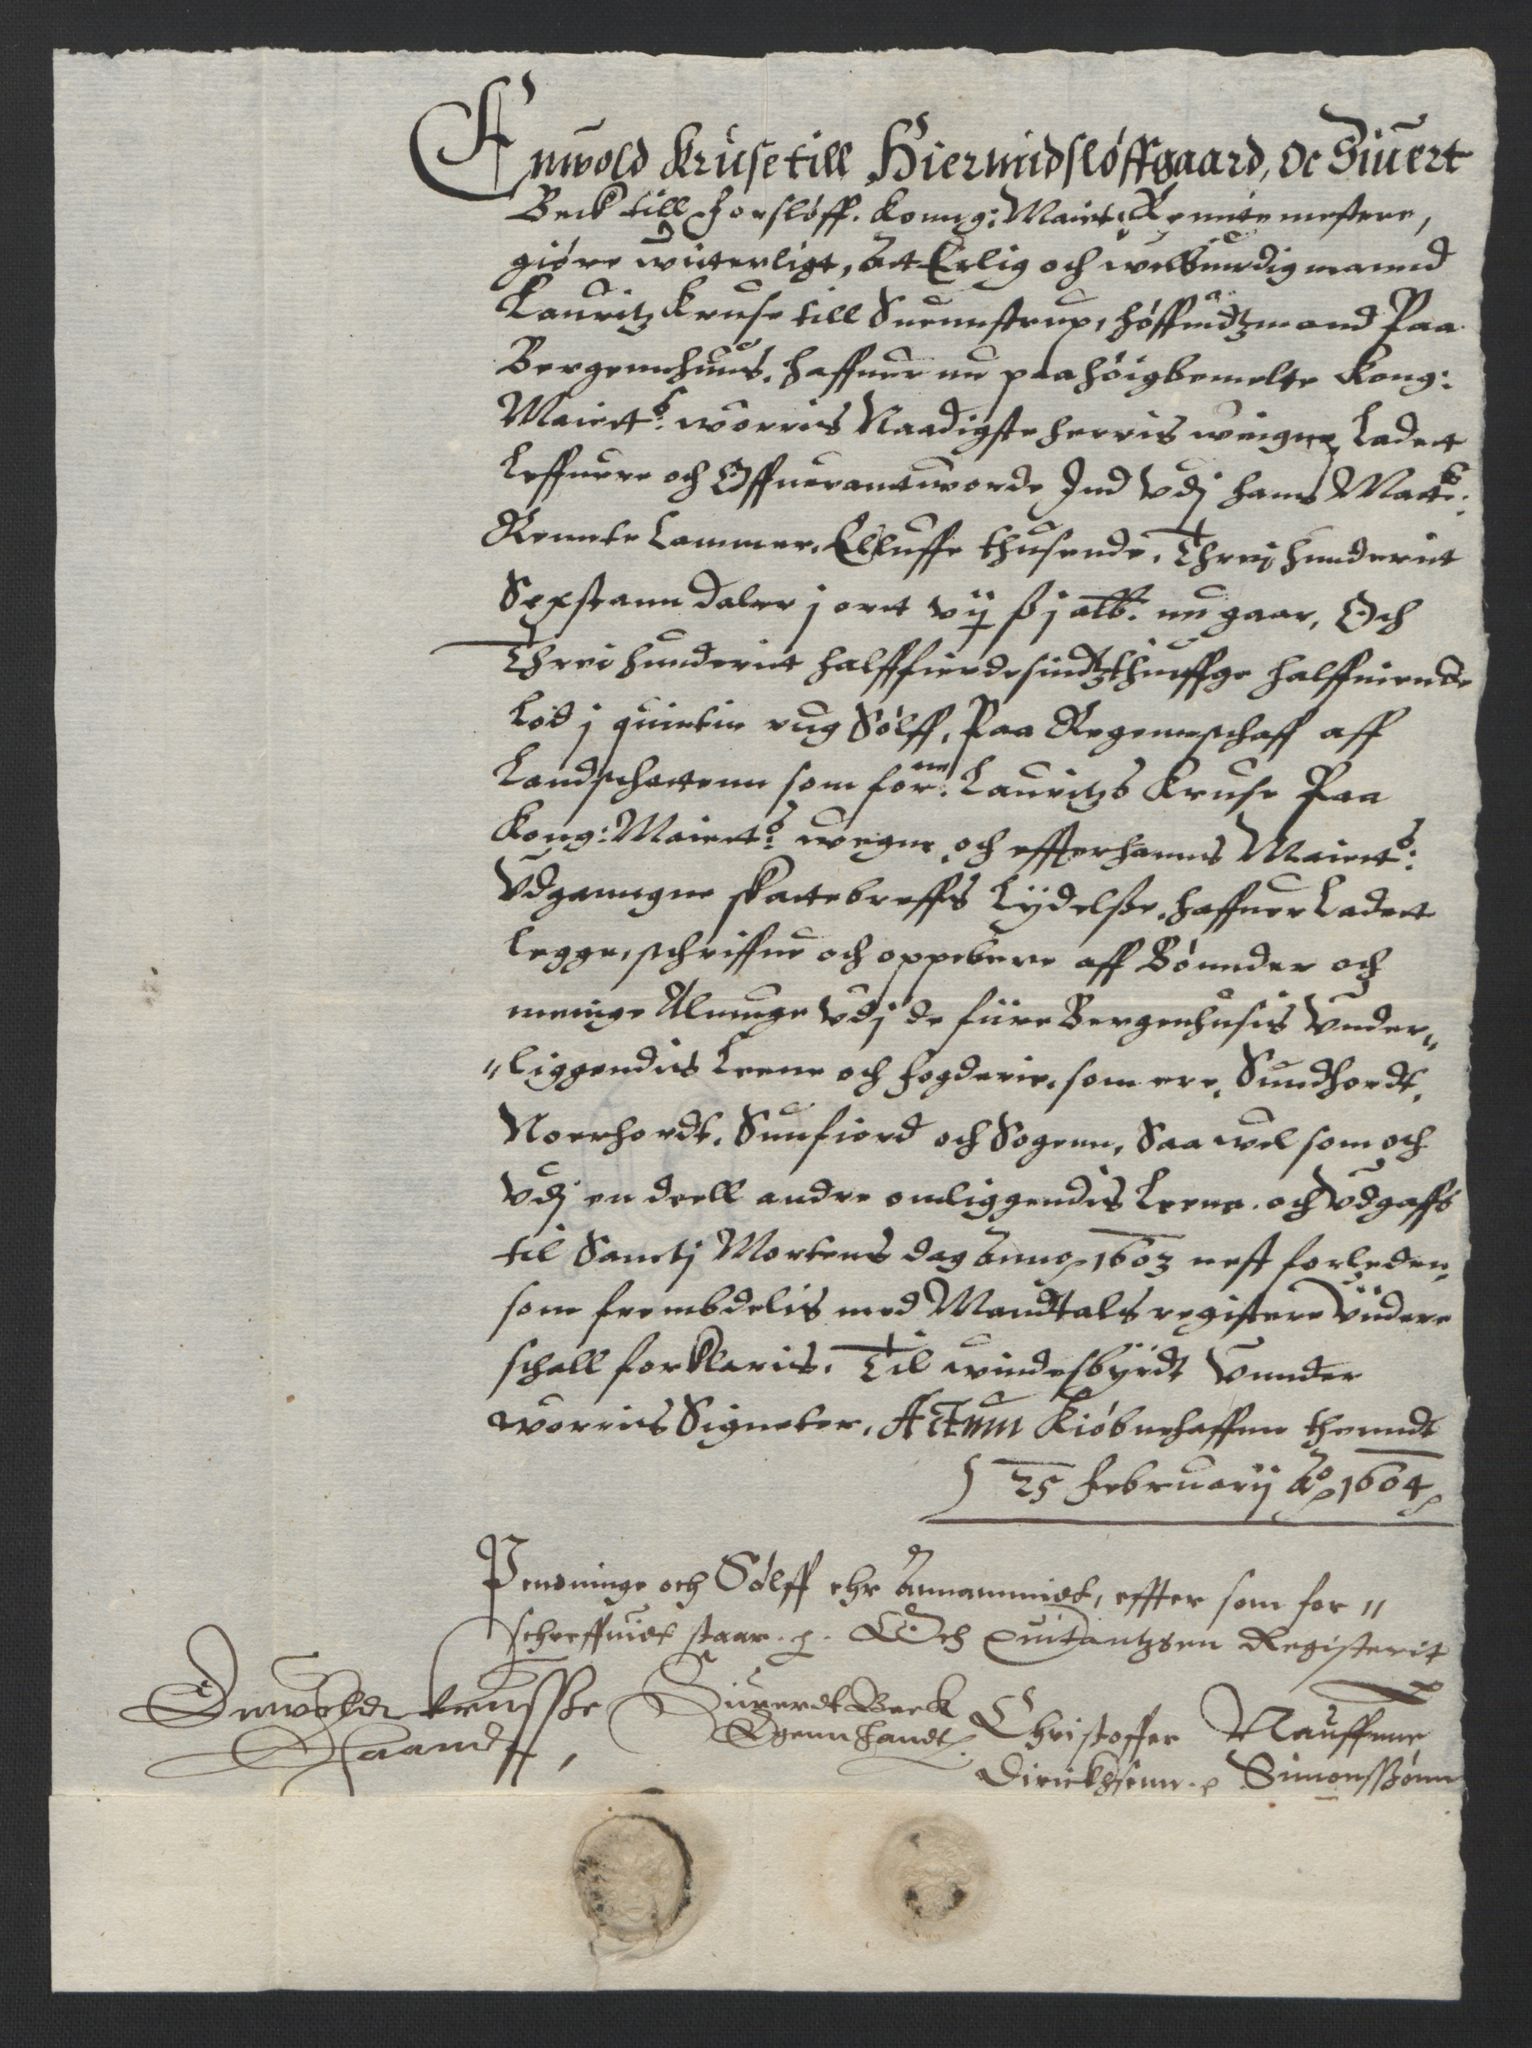 Enwold Krüse till Hiermidsløffgaard, Oc Siuert
Beck till Forsløff. Konng: Maiet: Rennte mestere,
giøre witterligt, at Erlig och welbiurdig mannd
Lauritz Kruse till Suennstrup, høffuidtzmand Paa
Bergennhuus. haffuer nu paa høigbemelte Kong:
Maiettz: worris Naadigste herris weigne, Ladett
Leffuere och Offuerantworde Ind vdj hans Matts:
Rennte Cammer. Elluffe thusende, Threj hunderit
Sexstann daler j ort vij ß j alb: nu gaar, Och
Threi hunderit halfffierdesindtzthiuffge halffniende
Lod j quintin rug Sølff, Paa Regennschaff aff
Landschattenn som forne: Lauritzs Kruse Paa
Kong: Maiettz: wegne, och effterhanns Maiettz:
Vdganngne skattebreffs Lydelsse, haffuer Ladett
legge, schriffue och oppebere aff Bønnder och
menige Almuge vdj de fiire Bergenhusis Vnder"
"liggendis Leene och fogderie, som ere, Sundhordt,
Noerhordt, Sunfiord och Sogenn, Saa vel som och
vdj en deell andre omliggendis Leene. och Vdgaffs
til Sanctj Mortens dag Anno 1603 nest forleden,
som frembdelis med Mandtals registere Videre
schall forklaris. Til windesbyrdt Vnnder
worris Signeter, Actum Kiøbnehaffnn thenndt
25 Februarij Ao 1604
Penninge och Sølff ehr Annammidt, effter som for "
schreffuidt staar. Och Quitantzsen Registerit
Enwoldt krusse Siuerdt Beck Christoffer Nauffnne
Haandt, Egenn handt Dirickssenn. Simonssønn